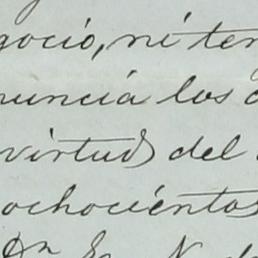 gocio, ni ten
nuncia los
virtud del
ochocientos
Dn